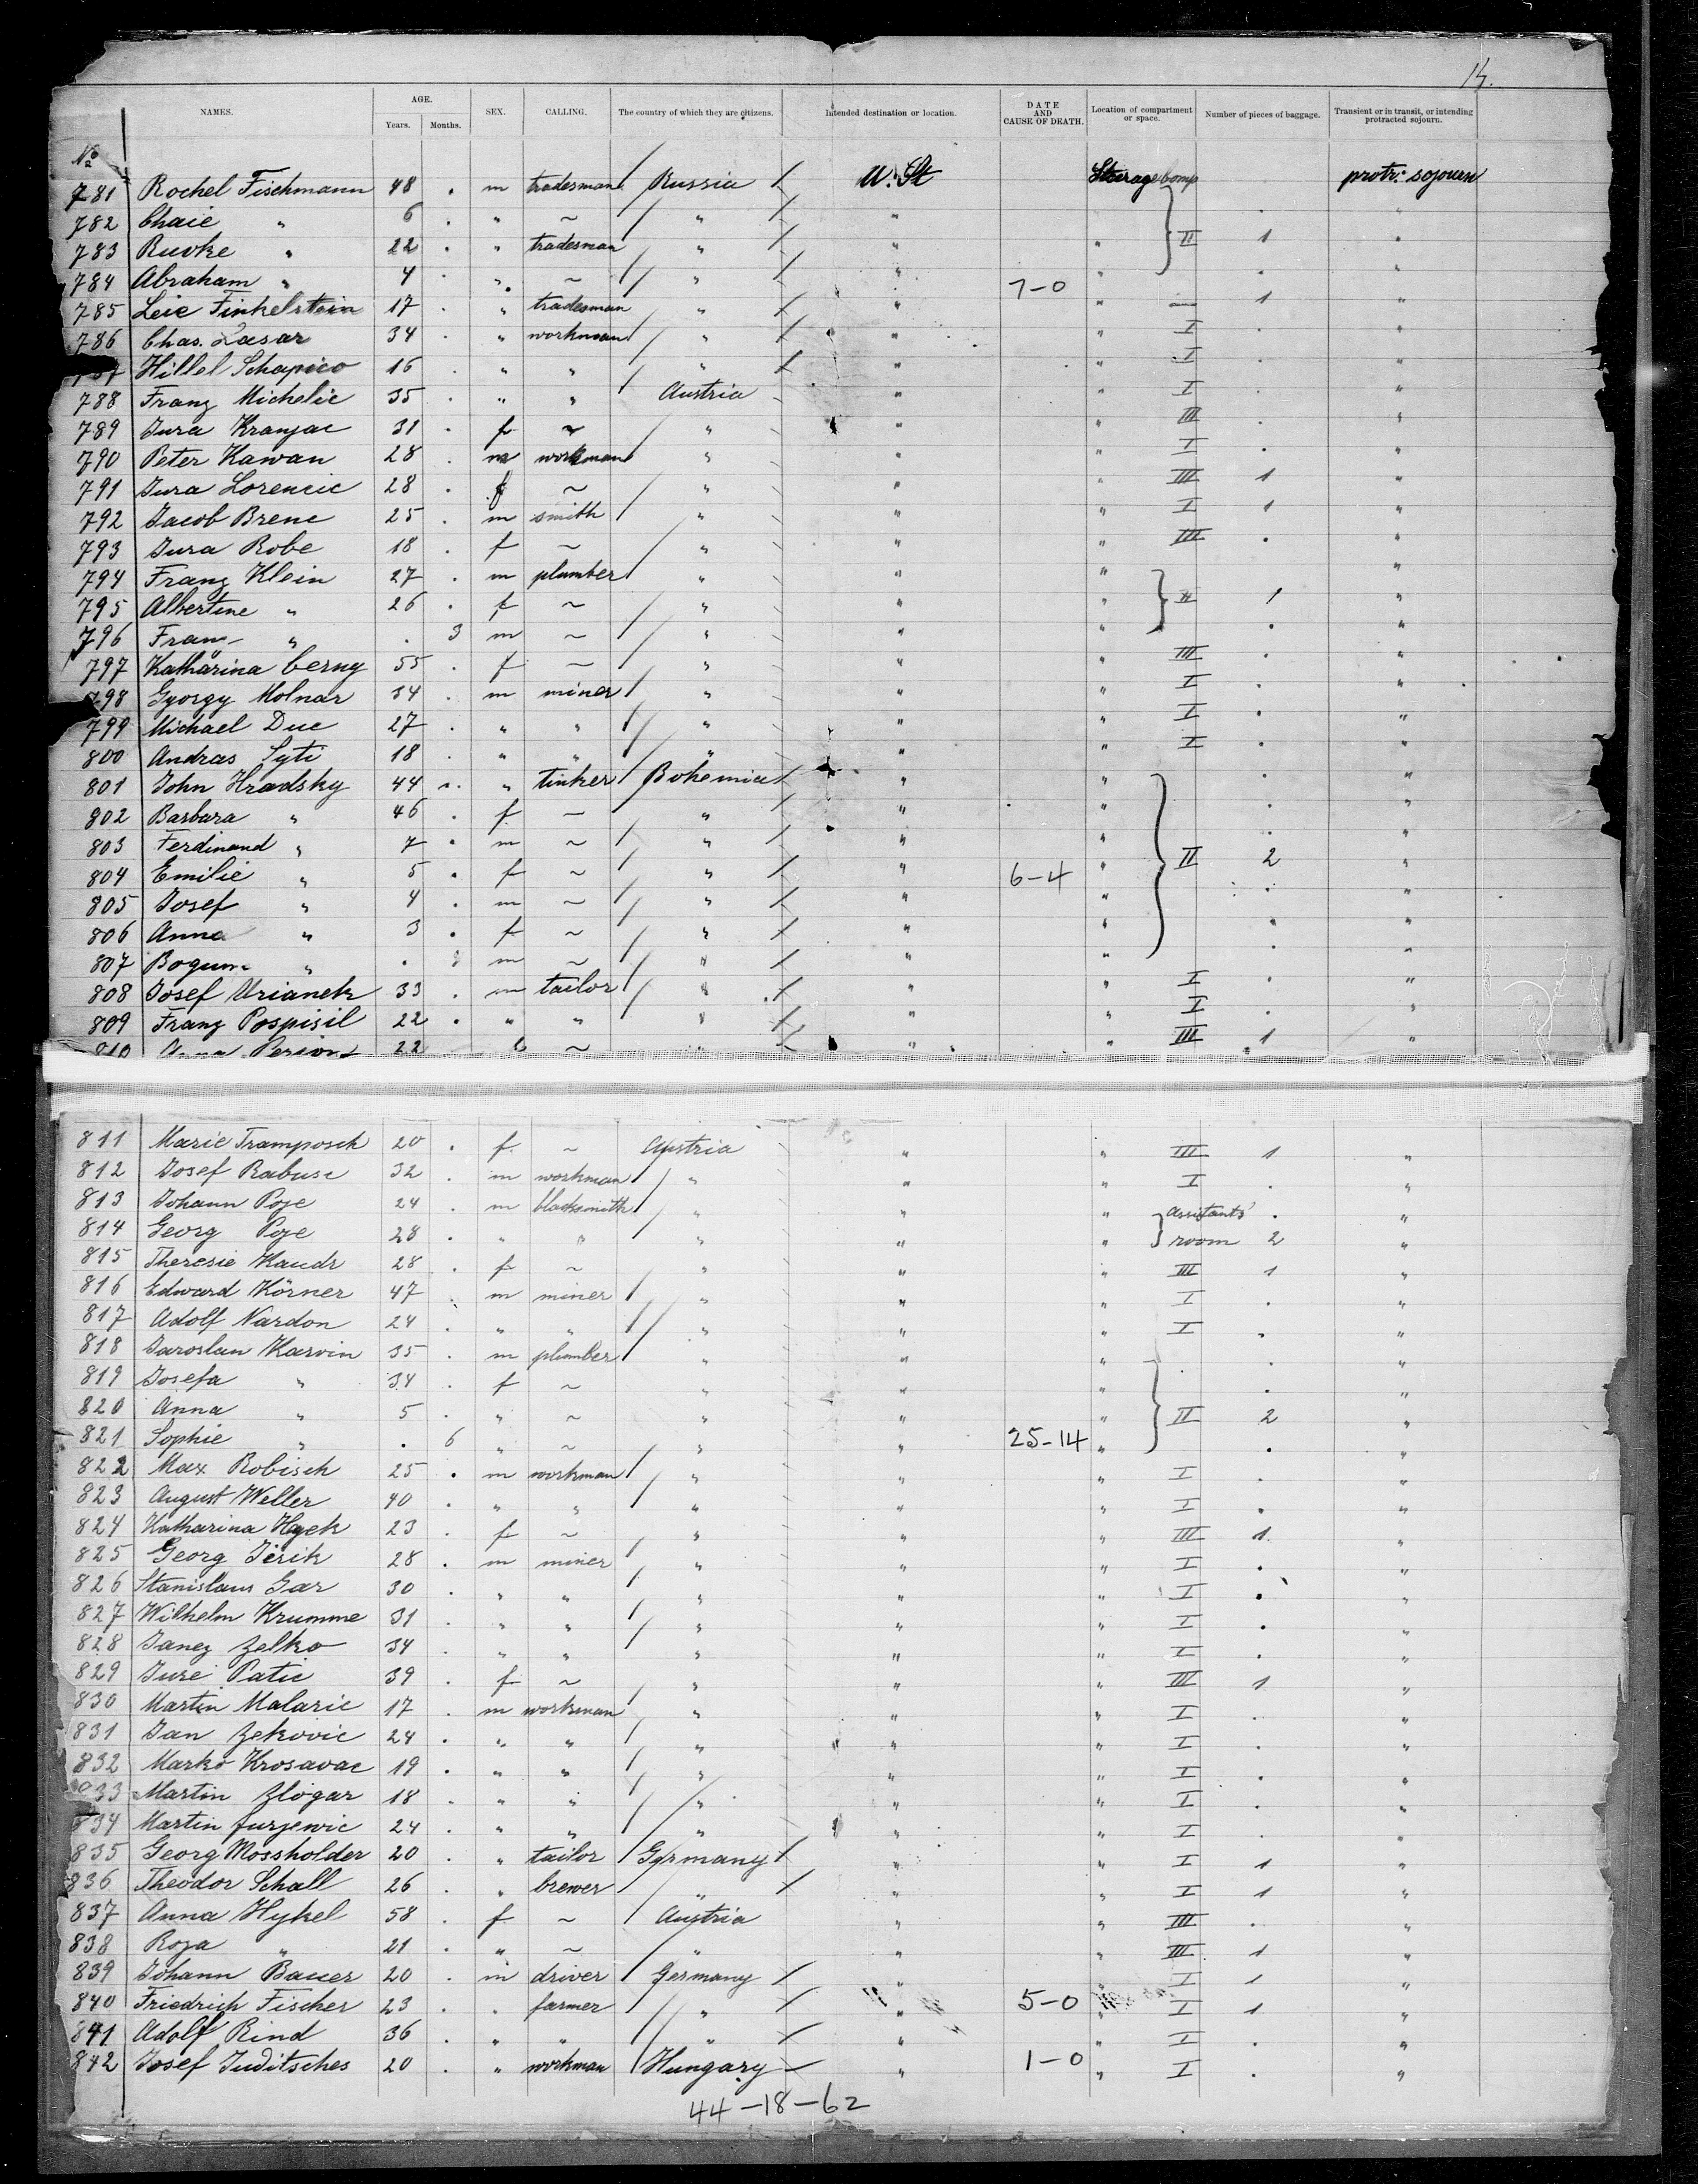 14.
NAMES. AGE. Years. Months. SEX. CALLING. The country of which they are citizens. Intended destination or location. DATE AND CAUSE OF DEATH. Location of compartment or space. Number of pieces of baggage. Transient or in transit, or intending protracted sojourn.
No
781 Rochel Fischmann 48 . m tradesman Russia U. St Steerage comp protr: sojourn
782 Chaie " 6 . " ~ " " . "
783 Ruvke " 22 . " tradesman " " " II 1 "
784 Abraham " 4 . " ~ " " 7-0 " . "
785 Leie Finkelstein 17 . " tradesman " " " 1 "
786 Chas. Lasar 34 . " workman " " " I . "
787 Hillel Schapico 16 . " " " " " I . "
788 Franz Michelic 35 . " " Austria " " I . "
789 Jura Kranjac 31 . f ~ " " " III . "
790 Peter Kawan 28 . m workman " " " I . "
791 Jura Lorencic 28 . f ~ " " " III 1 "
792 Jacob Brenc 25 . m smith " " " I 1 "
793 Jura Robe 18 . f ~ " " " III . "
794 Franz Klein 27 . m plumber " " " "
795 Albertine " 26 . f ~ " " " II 1 "
796 Franz " . 3 m ~ " " " . "
797 Katharina Cerny 55 . f ~ " " " III . "
798 Gyorgy Molnar 34 . m miner " " " I . "
799 Michael Duc 27 . " " " " " I . "
800 Andras Syti 18 . " " " " I . "
801 John Hradsky 44 . " tinker Bohemia " " . "
802 Barbara " 46 . f ~ " " " . "
803 Ferdinand " 7 . m ~ " " " . "
804 Emilie " 5 . f ~ " " 6-4 " II 2 "
805 Josef " 4 . m ~ " " " . "
806 Anna " 3 . f ~ " " " . "
807 " . m ~ " " " . "
808 Josef Urianek 33 . m tailor " " " I . "
809 Franz Pospisil 22 . " " " " " I . "
810 Anna 22 ~ " " " III 1 "
811 Marie Tramposch 20 . f ~ Austria " " III 1 "
812 Josef Rabuse 32 . m workman " " " I . "
813 Johann Poje 24 . m blacksmith " " " assistants' . "
814 Georg Poje 28 . " " " " " room 2 "
815 Theresie Kaudr 28 . f ~ " " " III 1 "
816 Edward Körner 47 . m miner " " " I . "
817 Adolf Nardon 24 . " " " " " I . "
818 Jaroslau Karvin 35 . m plumber " " " . "
819 Josefa " 34 . f ~ " " " . "
820 Anna " 5 . " ~ " " " II 2 "
821 Sophie " . 6 " ~ " " 25-14 " . "
822 Max Robisch 25 . m workman " " " I . "
823 August Weller 40 . " " " " " I . "
824 Katharina Hyek 23 . f ~ " " " III 1 "
825 Georg Jerik 28 . m miner " " " I . "
826 Stanislaus Gar 30 . " " " " " I . "
827 Wilhelm Krumme 31 . " " " " " I . "
828 Janez Zelko 34 . " " " " " I . "
829 Jure Patic 39 . f ~ " " " III 1 "
830 Martin Malaric 17 . m workman " " " I . "
831 Jan Zekovic 24 . " " " " " I . "
832 Marko Krosavac 19 . " " " " " I . "
833 Martin Zlogar 18 . " " " " " I . "
834 Martin Jurjewic 24 . " " " " " I . "
835 Georg Mossholder 20 . " tailor Germany " " I 1 "
836 Theodor Schall 26 . " brewer " " " I 1 "
837 Anna Hykel 58 . f ~ Austria " " III . "
838 Roza " 21 . " ~ " " " III 1 "
839 Johann Bauer 20 . m driver Germany " " I 1 "
840 Friedrich Fischer 23 . " farmer " " 5-0 " I 1 "
841 Adolf Rind 36 . " " " " " I . "
842 Josef Juditsches 20 . " workman Hungary " 1-0 " I . "
44-18-62